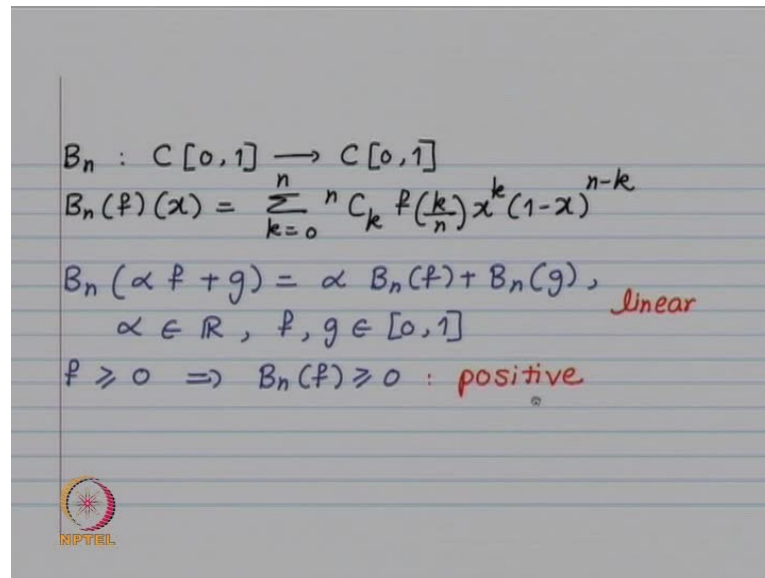 Bn : C [0, 1] → C [0, 1]
Bn (f) (x) = n Σ k=0 ⁿCₖ f(k/n) xᵏ (1-x)ⁿ⁻ᵏ
Bn (α f + g) = α Bn (f) + Bn (g),
linear
α ∈ ℝ, f, g ∈ [0, 1]
f ⩾ 0 ⇒ Bn (f) ⩾ 0 : positive
NPTEL